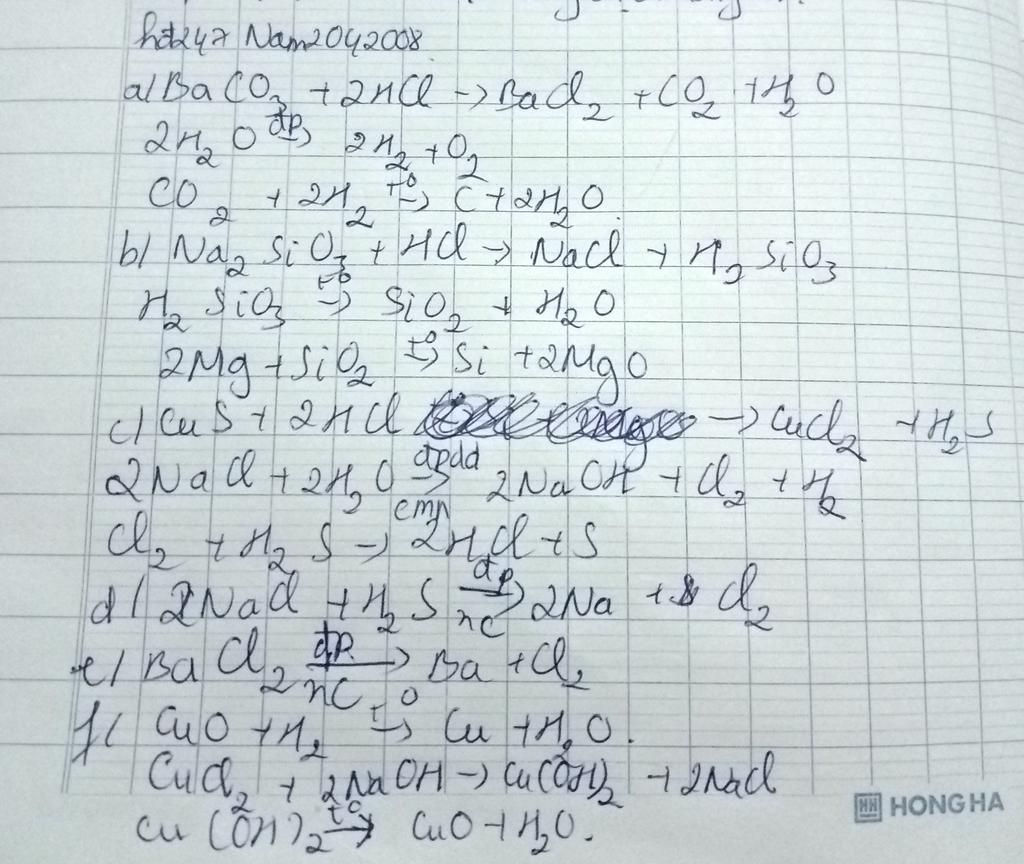 hdt247 Nam2042008
a/ BaCO₃ + 2HCl -> BaCl₂ + CO₂ + H₂O
2H₂O đp-> 2H₂ + O₂
CO₂ + 2H₂ t⁰-> C + 2H₂O.
b/ Na₂SiO₃ + HCl -> NaCl + H₂SiO₃
H₂SiO₃ t⁰-> SiO₂ + H₂O
2Mg + SiO₂ t⁰-> Si + 2MgO
c/ CuS + 2HCl -> CuCl₂ + H₂S
2NaCl + 2H₂O đpdd-> cmn 2NaOH + Cl₂ + H₂
Cl₂ + H₂S -> 2HCl + S
d/ 2NaCl + H₂S đp-> nc 2Na + Cl₂
e/ BaCl₂ đp-> nc Ba + Cl₂
f/ CuO + H₂ t⁰-> Cu + H₂O.
CuCl₂ + 2NaOH -> Cu(OH)₂ + 2NaCl
Cu(OH)₂ t⁰-> CuO + H₂O.
HH HONG HA